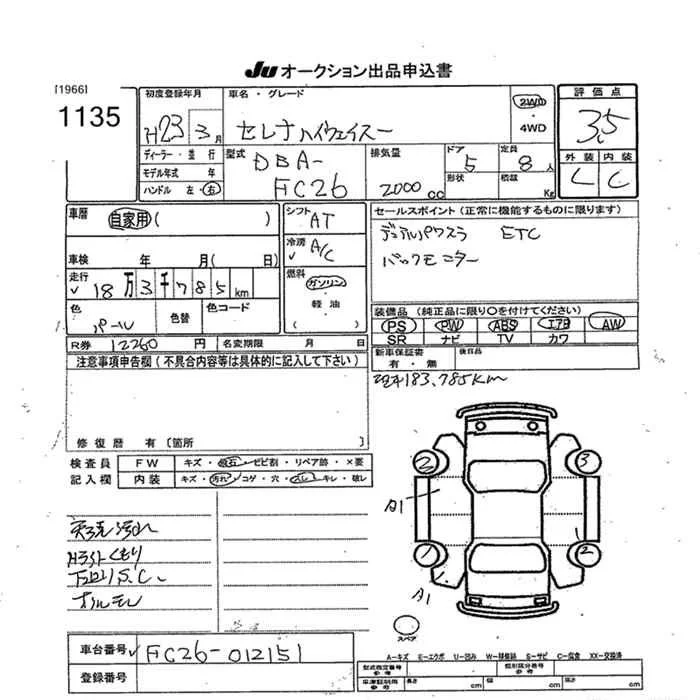 JU オークション出品申込書
[1966]
1135
初度登録年月
H23 3月
車名・グレード
セレナ ハイウェイスター
2WD
・
4WD
評価点
3.5
外装 内装
C C
ディーラー・並行
モデル年式 年
ハンドル 左・右
型式
DBA-
FC26
排気量
2000 cc
ドア
5
形状
定員
8人
積載
Kg
車歴
自家用 ( )
車検 年 月( 日)
走行
18万3千785km
色
パール
色替
色コード
シフト
AT
冷房
A/C
燃料
ガソリン
・
軽油
( )
セールスポイント(正常に機能するものに限ります)
デュアルパワスラ ETC
バックモニター
装備品(純正品に限り○を付けてください)
PS PW ABS エアB AW
SR ナビ TV カワ
R券 12260円
名変期限 月 日
新車保証書
有・無
後日品
注意事項申告欄(不具合内容等は具体的に記入して下さい)
183,785km
修復歴 有〔箇所 〕
検査員 FW キズ・飛石・ヒビ割・リペア跡・×要
記入欄 内装 キズ・汚れ・コゲ・穴・スレ・キレ・破レ
2 3
A1
1 2
A1
スペア
A-キズ E-エクボ U-凹み W-修理跡 S-サビ C-腐食 XX-交換済
車台番号 FC26-012151
登録番号
型式指定番号
参考
類別区分番号
参考
車庫証明用
参考
長さ cm 幅 cm 高さ cm